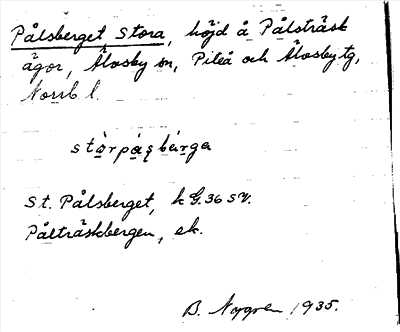 Pålsberget Stora, höjd å Pålsträsk
ägor, Älvsby sn, Piteå och Älvsby tg,
Norrb l.
stòrpàşbárga
St. Pålsberget, k G. 36 sv.
Pålträskbergen, ek.
B. Nygren 1935.